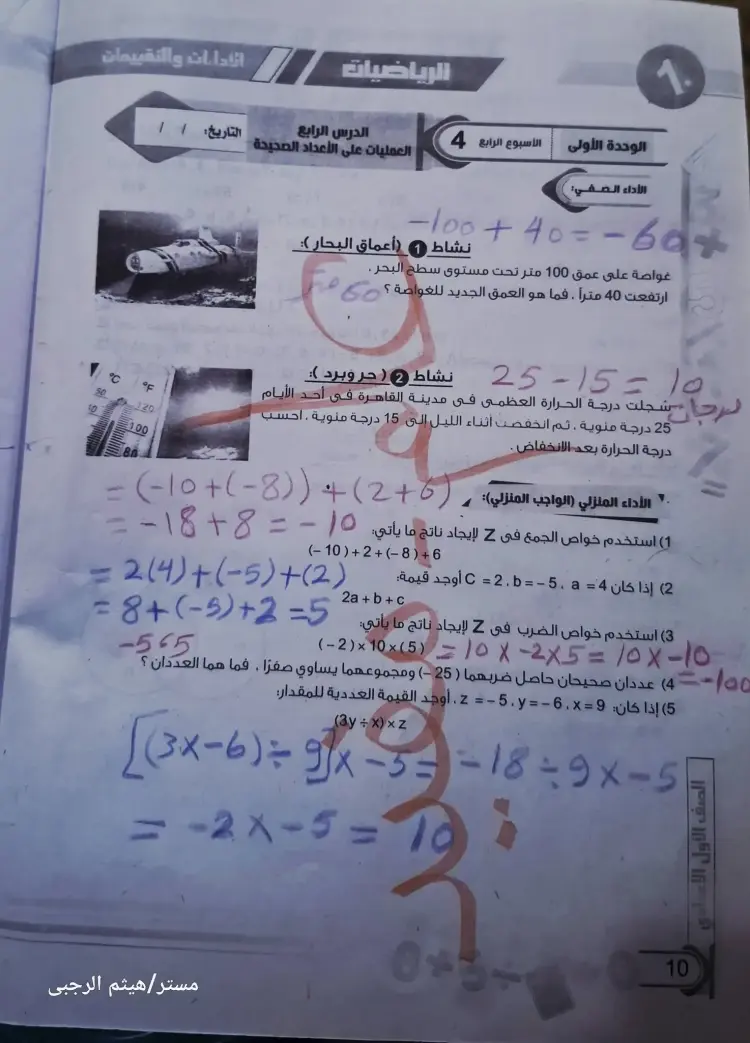 الأداءات والتقييمات
الرياضيات
10
الوحدة الأولى
الأسبوع الرابع 4
الدرس الرابع
العمليات على الأعداد الصحيحة
التاريخ: / /
الأداء الصفي:
-100 + 40 = -60
نشاط 1 (أعماق البحار):
غواصة على عمق 100 متر تحت مستوى سطح البحر .
ارتفعت 40 متراً ، فما هو العمق الجديد للغواصة ؟
60 متر
25 - 15 = 10
درجات
نشاط 2 (حر وبرد):
سُجلت درجة الحرارة العظمى فى مدينة القاهرة فى أحد الأيام
25 درجة مئوية ، ثم انخفضت أثناء الليل إلى 15 درجة مئوية ، احسب
درجة الحرارة بعد الانخفاض .
°C °F
120
100
80
= (-10 + (-8)) + (2+6)
= -18 + 8 = -10
الأداء المنزلي (الواجب المنزلي):
1) استخدم خواص الجمع فى Z لإيجاد ناتج ما يأتي:
(- 10) + 2 + (- 8) + 6
= 2(4) + (-5) + (2)
2) إذا كان a = 4 ، b = - 5 ، C = 2 أوجد قيمة:
2a + b + c
= 8 + (-5) + 2 = 5
3) استخدم خواص الضرب فى Z لإيجاد ناتج ما يأتي:
(- 2) × 10 × (5)
= 10 × -2 × 5 = 10 × -10
= -100
-5 و 5
4) عددان صحيحان حاصل ضربهما (- 25) ومجموعهما يساوي صفرًا ، فما هما العددان ؟
5) إذا كان: x = 9 ، y = - 6 ، z = - 5 ، أوجد القيمة العددية للمقدار:
(3y ÷ x) × z
[(3 × -6) ÷ 9] × -5 = -18 ÷ 9 × -5
= -2 × -5 = 10
الصف الأول الإعدادي
10
مستر/هيثم الرجبى